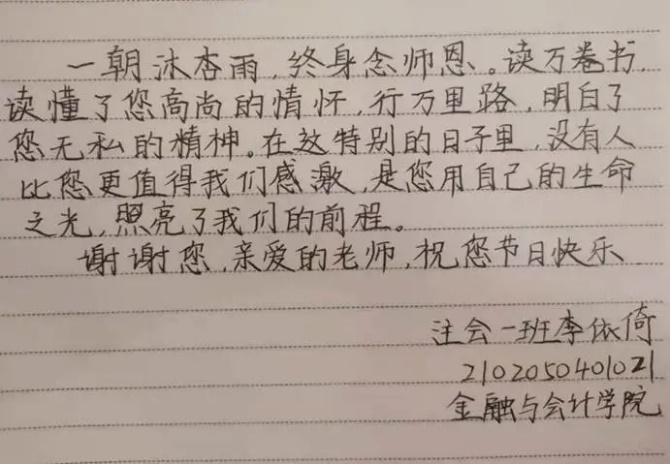 一朝沐杏雨，终身念师恩。读万卷书，
读懂了您高尚的情怀，行万里路，明白了
您无私的精神。在这特别的日子里，没有人
比您更值得我们感激，是您用自己的生命
之光，照亮了我们的前程。
谢谢您，亲爱的老师，祝您节日快乐
注会一班李依倚
2102050401021
金融与会计学院